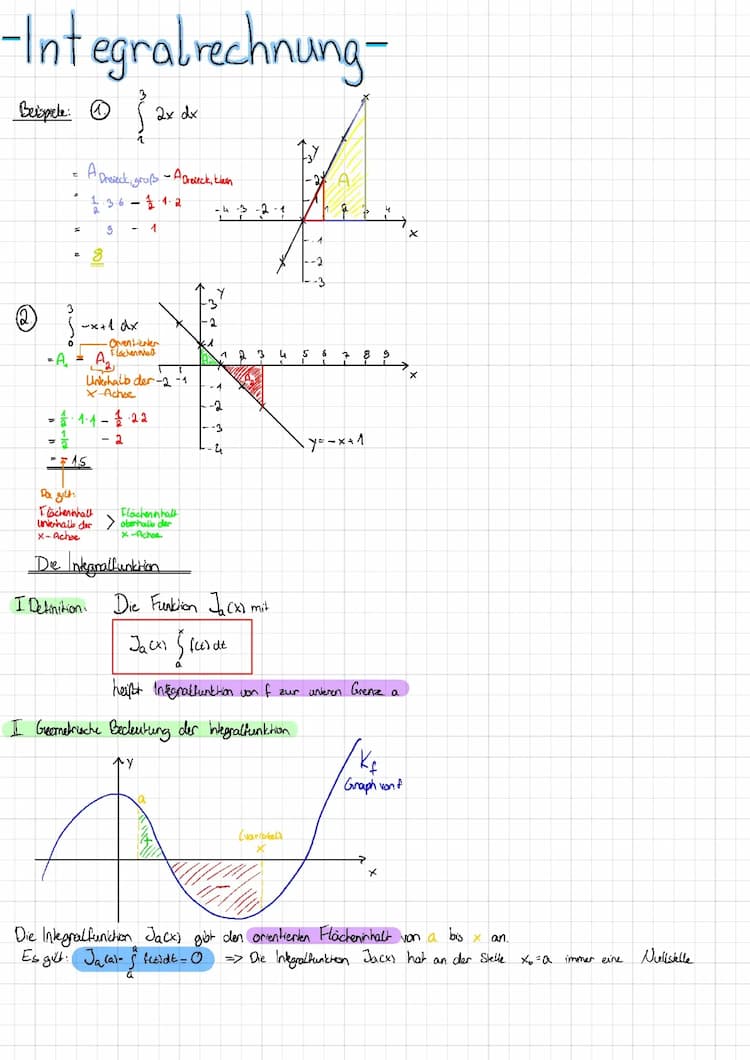 -Integralrechnung-
Beispiele: ① ∫₁³ 2x dx
= A Dreieck, groß - A Dreieck, klein
= 1/2 · 3 · 6 - 1/2 · 1 · 2
= 9 - 1
= 8
y
3
2
1
A
-4 -3 -2 -1 1 2 3 4
x
-1
-2
-3
② ∫₀³ -x+1 dx
Orientierter
Flächeninhalt
= A₁ - A₂
Unterhalb der
x-Achse
= 1/2 · 1 · 1 - 1/2 · 2 · 2
= 1/2 - 2
= - 1,5
Da gilt:
Flächeninhalt
unterhalb der
x-Achse
>
Flächeninhalt
oberhalb der
x-Achse
y
3
2
1
A₁
-2 -1 1 2 3 4 5 6 7 8 9
x
A₂
-1
-2
-3
-4
y = -x+1
Die Integralfunktion
I Definition: Die Funktion Jₐ(x) mit
Jₐ(x) ∫ₐˣ f(t) dt
heißt Integralfunktion von f zur unteren Grenze a
II Geometrische Bedeutung der Integralfunktion
y
a
+
-
(variabel)
x
K_f
Graph von f
x
Die Integralfunktion Jₐ(x) gibt den orientierten Flächeninhalt von a bis x an.
Es gilt: Jₐ(a) = ∫ₐᵃ f(t) dt = 0 => Die Integralfunktion Jₐ(x) hat an der Stelle x₀ = a immer eine Nullstelle